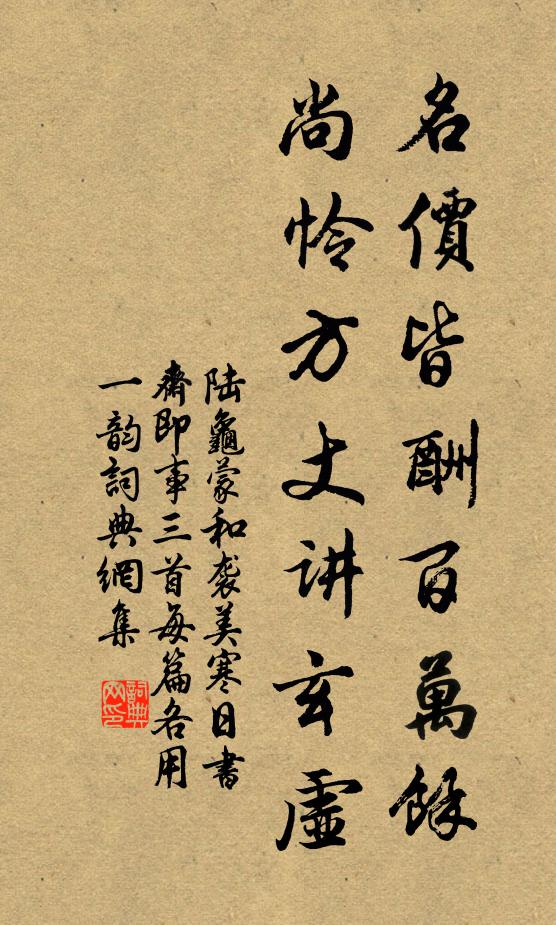 名價皆酬百萬餘
尚怜方丈讲玄虛
陆龜蒙和袭美寒日書
齋即事三首每篇各用
一韵詞典網集
詞典
网印